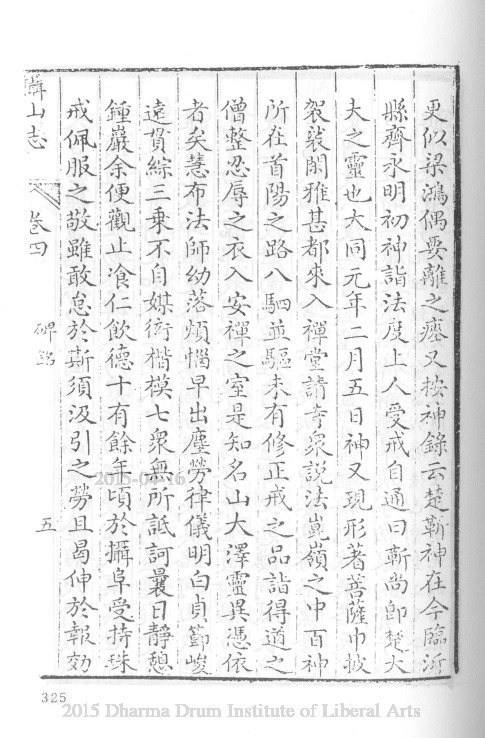 更似梁鴻偶要離之瘞又按神錄云楚靳神在今臨沂
縣齊永明初神詣法度上人受戒自通曰靳尚即楚大
夫之靈也大同元年二月五日神又現形著菩薩巾披
袈裟閑雅甚都來入禪堂請寺衆説法崑嶺之中百神
所在首陽之路八駟並驅未有修正戒之品詣得道之
僧整忍辱之衣入安禪之室是知名山大澤靈異憑依
者矣慧布法師幼落煩惱早出塵勞律儀明白貞節峻
遠貫綜三乗不自媒衒楷模七衆無所詆訶曩日靜憩
鍾巖余便觀止飡仁飲德十有餘年頃於攝阜受持珠
戒佩服之敬雖敢怠於斯須汲引之勞且曷伸於報効
山志
卷四
碑銘
五
325
2015-04-16
2015 Dharma Drum Institute of Liberal Arts